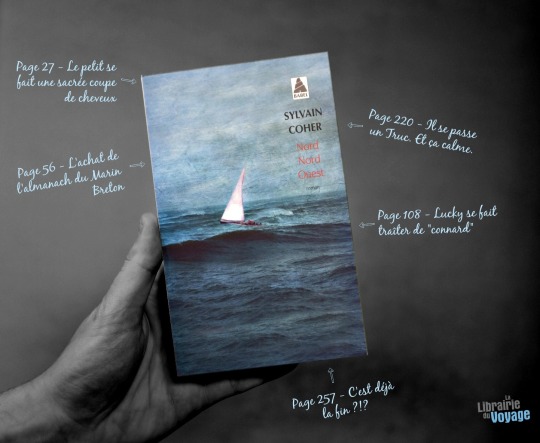 Page 27 - Le petit se
fait une sacrée coupe
de cheveux
Page 56 - L'achat de
l'almanach du Marin
Breton
BABEL
SYLVAIN
COHER
Nord
Nord
Ouest
roman
Page 220 - Il se passe
un Truc. Et ça calme.
Page 108 - Lucky se fait
traîter de "connard"
Page 257 - C'est déjà
la fin ?!?
La
Librairie
du Voyage